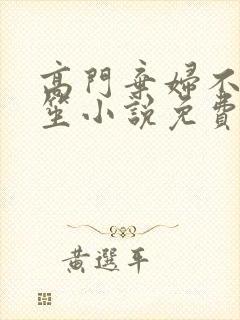 高門棄婦不
笙小說免費
黃選平